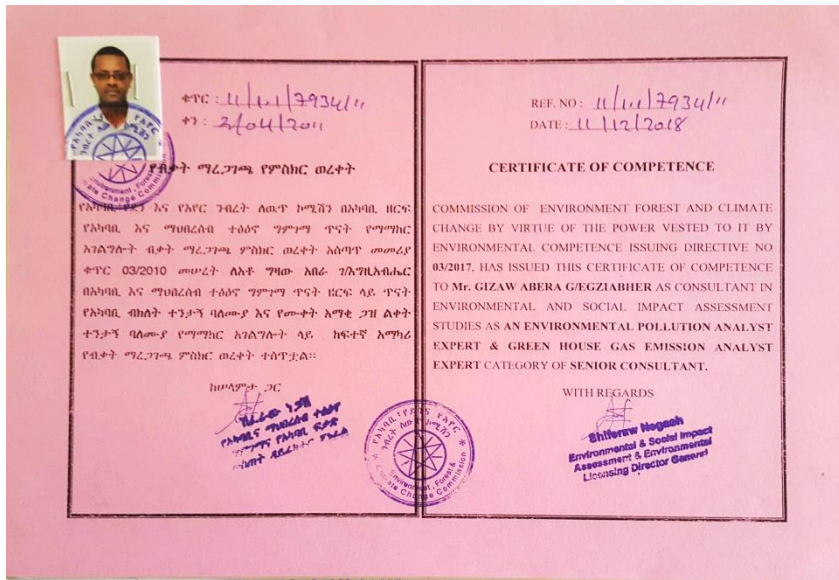 ቁጥር : 11/1.1/7934/11
ቀን : 2/04/2011
የብቃት ማረጋገጫ የምስክር ወረቀት
የአካባቢ የደን እና የአየር ንብረት ለዉጥ ኮሚሽን በአካባቢ ዘርፍ
የአካባቢ እና ማህበረሰብ ተፅዕኖ ግምገማ ጥናት የማማከር
አገልግሎት ብቃት ማረጋገጫ ምስክር ወረቀት አሰጣጥ መመሪያ
ቁጥር 03/2010 መሠረት ለአቶ ግዛው አበራ ገ/እግዚአብሔር
በአካባቢ እና ማህበረሰብ ተፅዕኖ ግምገማ ጥናት ዘርፍ ላይ ጥናት
የአካባቢ ብክለት ተንታኝ ባለሙያ እና የሙቀት አማቂ ጋዝ ልቀት
ተንታኝ ባለሙያ የማማከር አገልግሎት ላይ ከፍተኛ አማካሪ
የብቃት ማረጋገጫ ምስክር ወረቀት ተሰጥቷል፡፡
ከሠላምታ ጋር
REF. NO : 11/1.1/7934/11
DATE : 11/12/2018
CERTIFICATE OF COMPETENCE
COMMISSION OF ENVIRONMENT FOREST AND CLIMATE
CHANGE BY VIRTUE OF THE POWER VESTED TO IT BY
ENVIRONMENTAL COMPETENCE ISSUING DIRECTIVE NO
03/2017, HAS ISSUED THIS CERTIFICATE OF COMPETENCE
TO Mr. GIZAW ABERA G/EGZIABHER AS CONSULTANT IN
ENVIRONMENTAL AND SOCIAL IMPACT ASSESSMENT
STUDIES AS AN ENVIRONMENTAL POLLUTION ANALYST
EXPERT & GREEN HOUSE GAS EMISSION ANALYST
EXPERT CATEGORY OF SENIOR CONSULTANT.
WITH REGARDS
Shiferaw Negash
Environmental & Social Impact
Assessment & Environmental
Licensing Director General
Environment, Forest &
Climate Change Commission